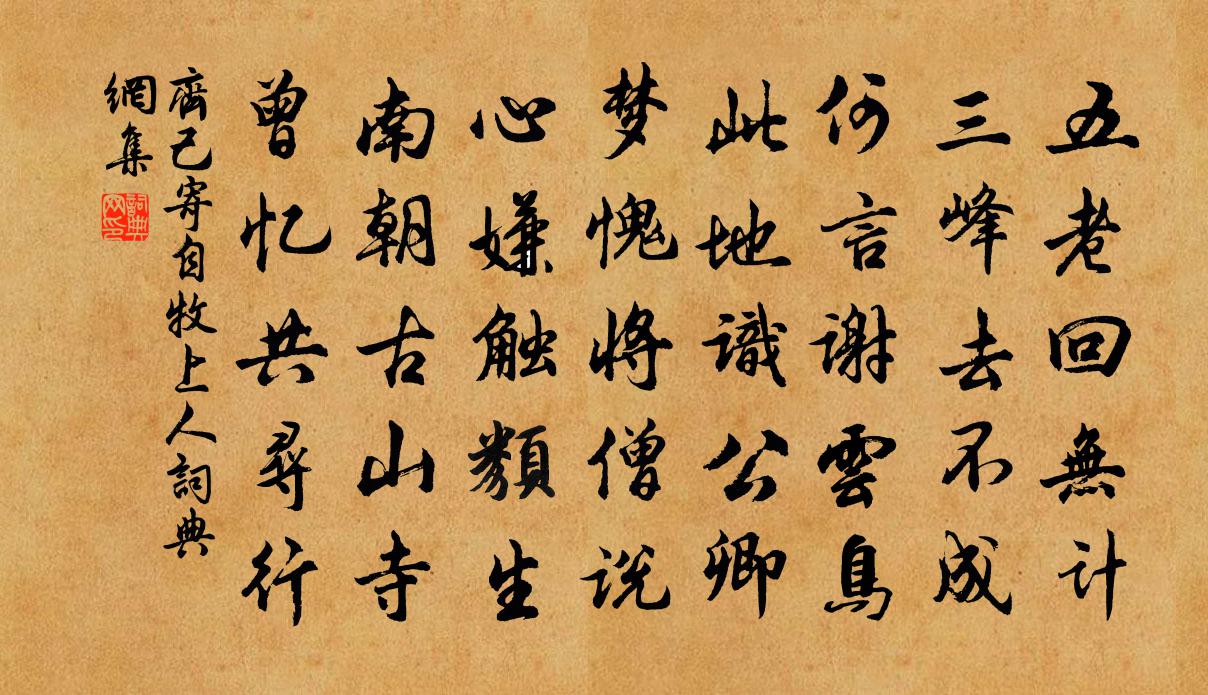 五老回無计
三峰去不成
何言謝雲鳥
此地識公卿
梦愧将僧说
心嫌触类生
南朝古山寺
曾忆共尋行
齊己寄自牧上人詞典
網集
詞典网印